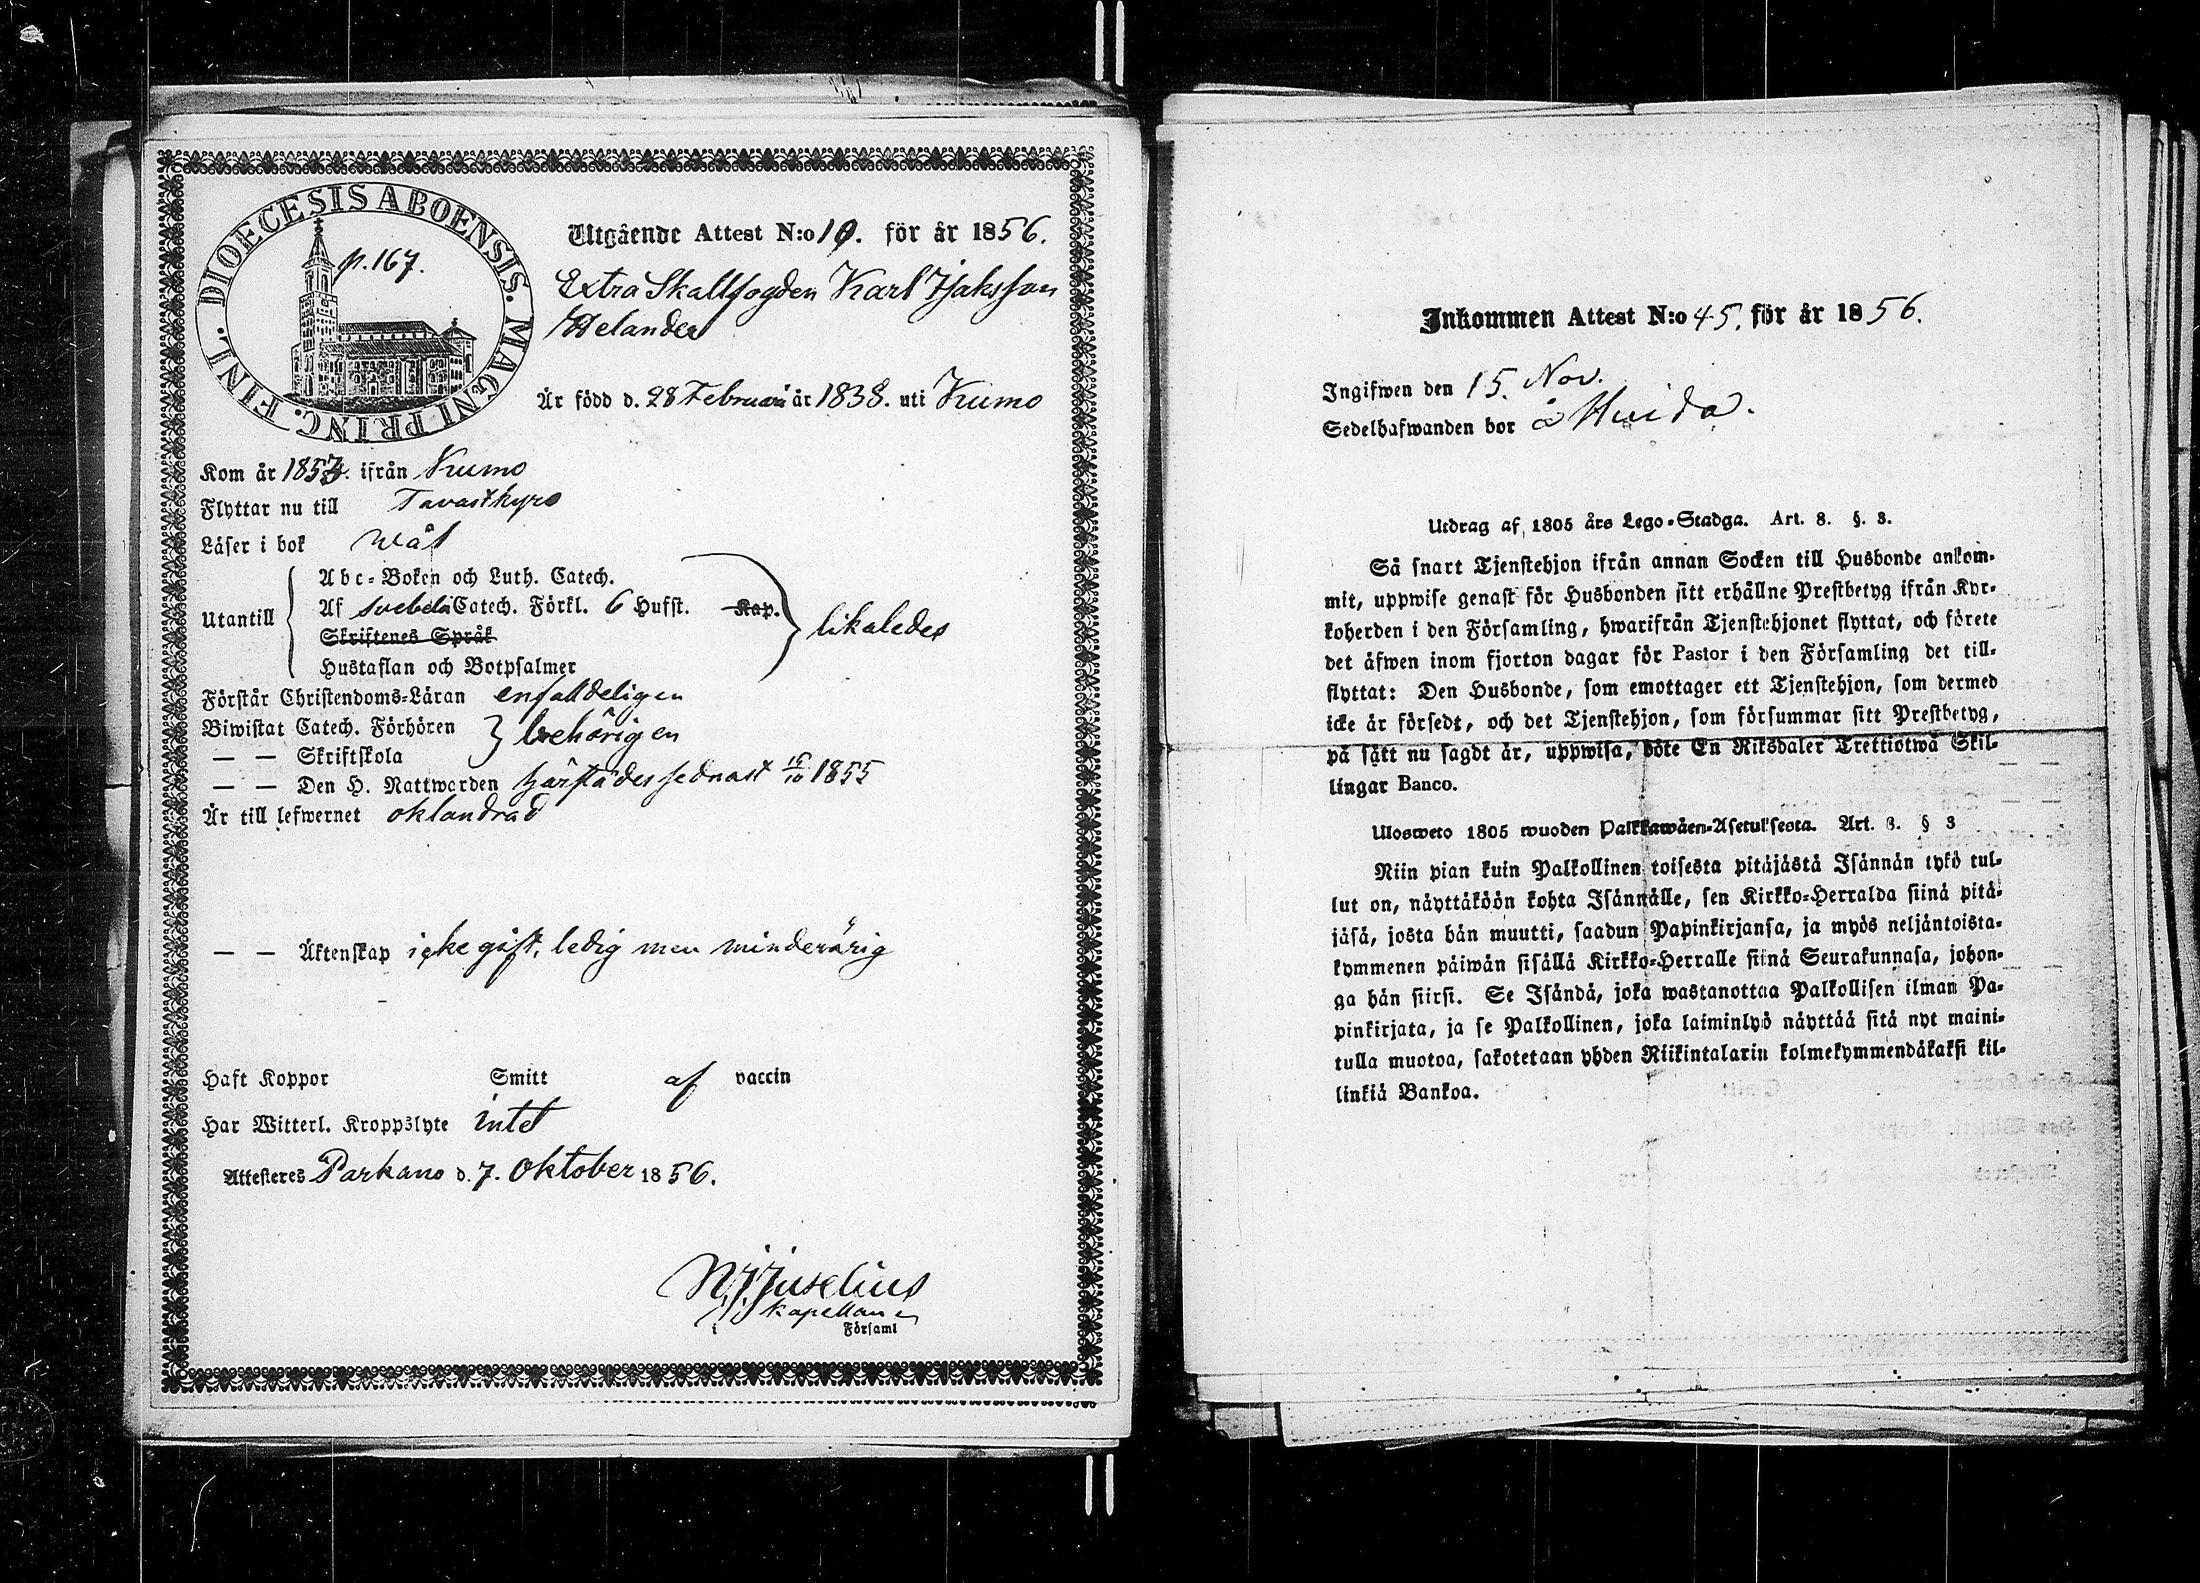 DIOECESIS ABOENSIS. MAGNI PRINC. FINL.
p. 167.
Utgående Attest N:o 10. för år 1856.
Extra Skallfogden Karl Isaksson
Helander
Är född d. 28 Februari år 1838. uti Kumo
Kom år 1853. ifrån Kumo
Flyttar nu till Tavastkyro
Läser i bok wäl
Utantill
Abc-Boken och Luth. Catech.
Af Svebelii Catech. Förkl. 6 Hufst. Kap.
Skriftenes Språk
Hustaflan och Botpsalmer
likaledes
Förstår Christendoms-Läran enfaldeligen
Biwistat Catech. Förhören
— — Skriftskola
behörigen
— — Den H. Nattwarden härstädes sednast 15/10 1855
Är till lefwernet oklandrad
— — Äktenskap icke gift, ledig men minderårig
Haft Koppor Smitt af vaccin
Har Witterl. Kroppslyte intet
Attesteres Parkano d. 7. Oktober 1856.
N J Juselius
kapellan
i Församl
Inkommen Attest N:o 45. för år 1856.
Ingifwen den 15. Nov.
Sedelhafwanden bor å
Utdrag af 1805 års Lego-Stadga. Art. 8. §. 3.
Så snart Tjenstehjon ifrån annan Socken till Husbonde ankom-
mit, uppwise genast för Husbonden sitt erhållne Prestbetyg ifrån Kyr-
koherden i den Församling, hwarifrån Tjenstehjonet flyttat, och förete
det äfwen inom fjorton dagar för Pastor i den Församling det till-
flyttat: Den Husbonde, som emottager ett Tjenstehjon, som dermed
icke är försedt, och det Tjenstehjon, som försummar sitt Prestbetyg,
på sätt nu sagdt är, uppwisa, böte En Riksdaler Trettiotwå Skil-
lingar Banco.
Ulosweto 1805 wuoden Palkkawäen-Asetuksesta. Art. 8. § 3
Niin pian kuin Palkollinen toisesta pitäjästä Isännän tykö tul-
lut on, näyttäköön kohta Isännälle, sen Kirkko-Herralda siinä pitä-
jäsä, josta hän muutti, saadun Papinkirjansa, ja myös neljäntoista-
kymmenen päiwän sisällä Kirkko-Herralle siinä Seurakunnasa, johon-
ga hän siirsi. Se Isändä, joka wastanottaa Palkollisen ilman Pa-
pinkirjata, ja se Palkollinen, joka laiminlyö näyttää sitä nyt maini-
tulla muotoa, sakotetaan yhden Riikintalarin kolmekymmendäkaksi kil-
linkiä Bankoa.